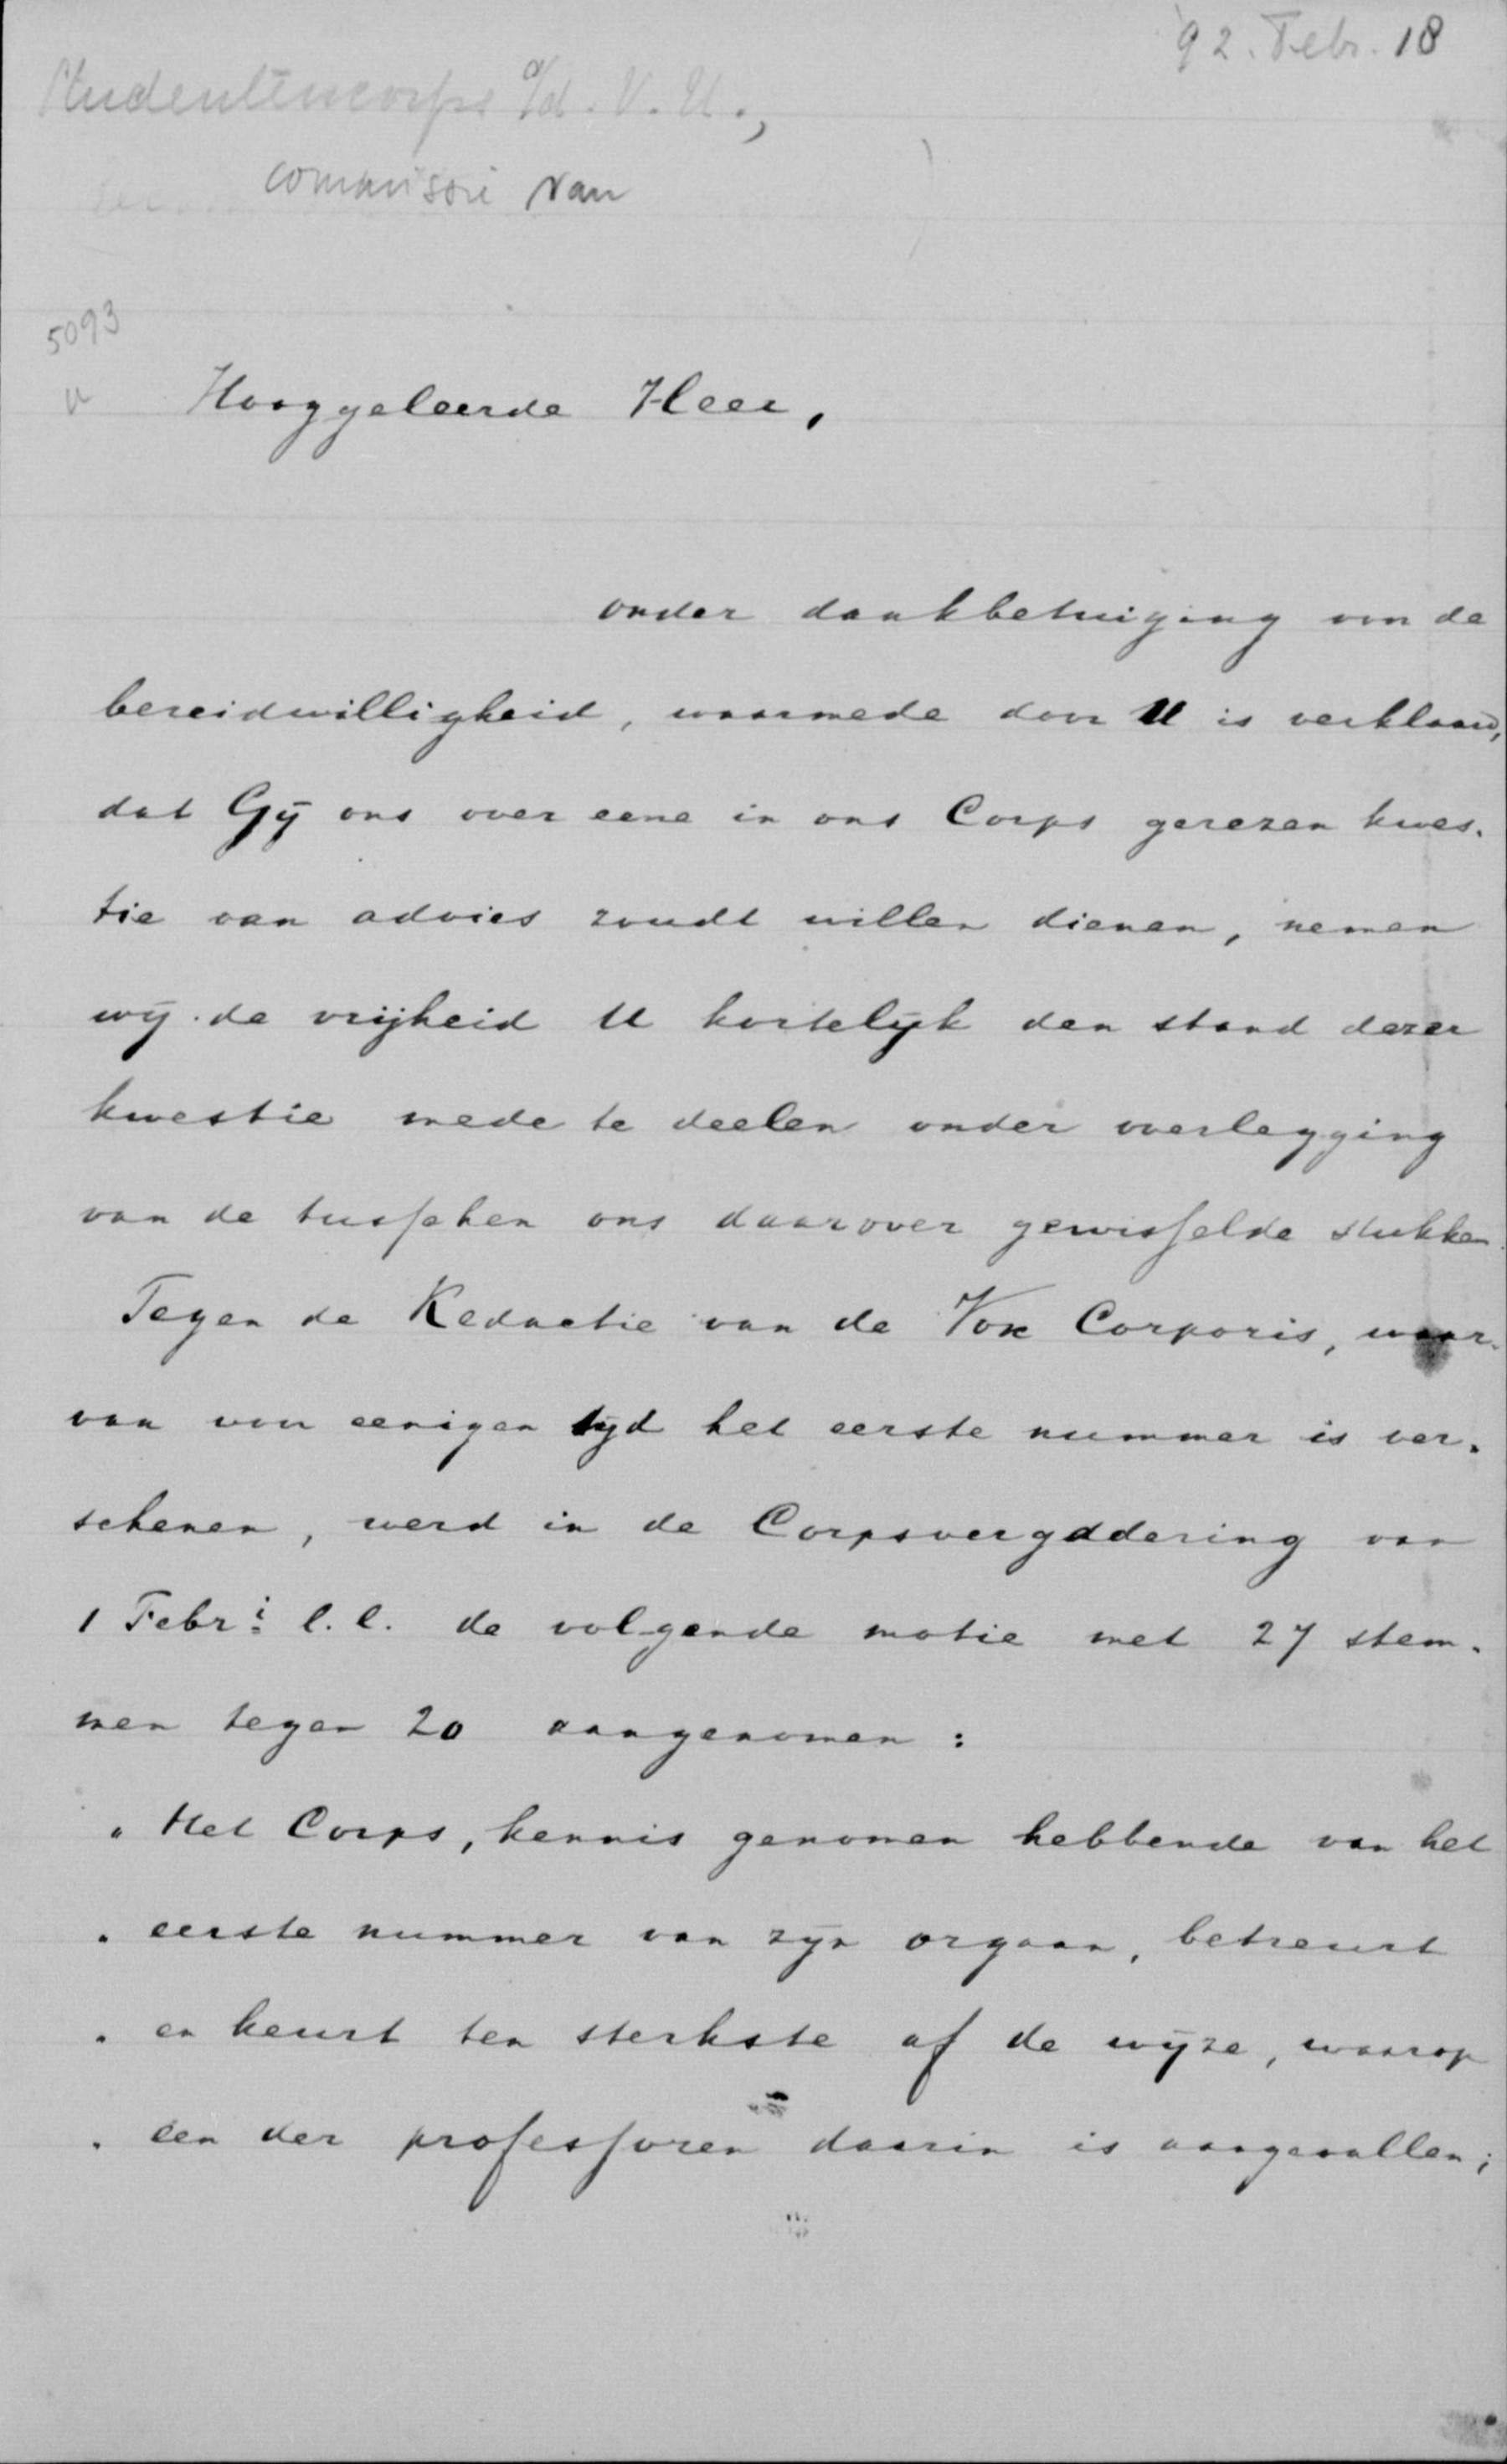 '92. Febr. 18
Studentencorps a/d. V. U.,
commissie van
5093
Hooggeleerde Heer,
onder dankbetuiging voor de
bereidwilligheid, waarmede door U is verklaard,
dat Gij ons over eene in ons Corps gerezen kwes-
tie van advies zoudt willen dienen, nemen
wij de vrijheid U kortelijk den stand dezer
kwestie mede te deelen onder overlegging
van de tusschen ons daarover gewisselde stukken.
Tegen de Redactie van de Vox Corporis, waar-
van voor eenigen tijd het eerste nummer is ver-
schenen, werd in de Corpsvergadering van
1 Febri l.l. de volgende motie met 27 stem-
men tegen 20 aangenomen:
" Het Corps, kennis genomen hebbende van het
" eerste nummer van zijn orgaan, betreurt
" en keurt ten sterkste af de wijze, waarop
" een der professoren daarin is aangevallen;